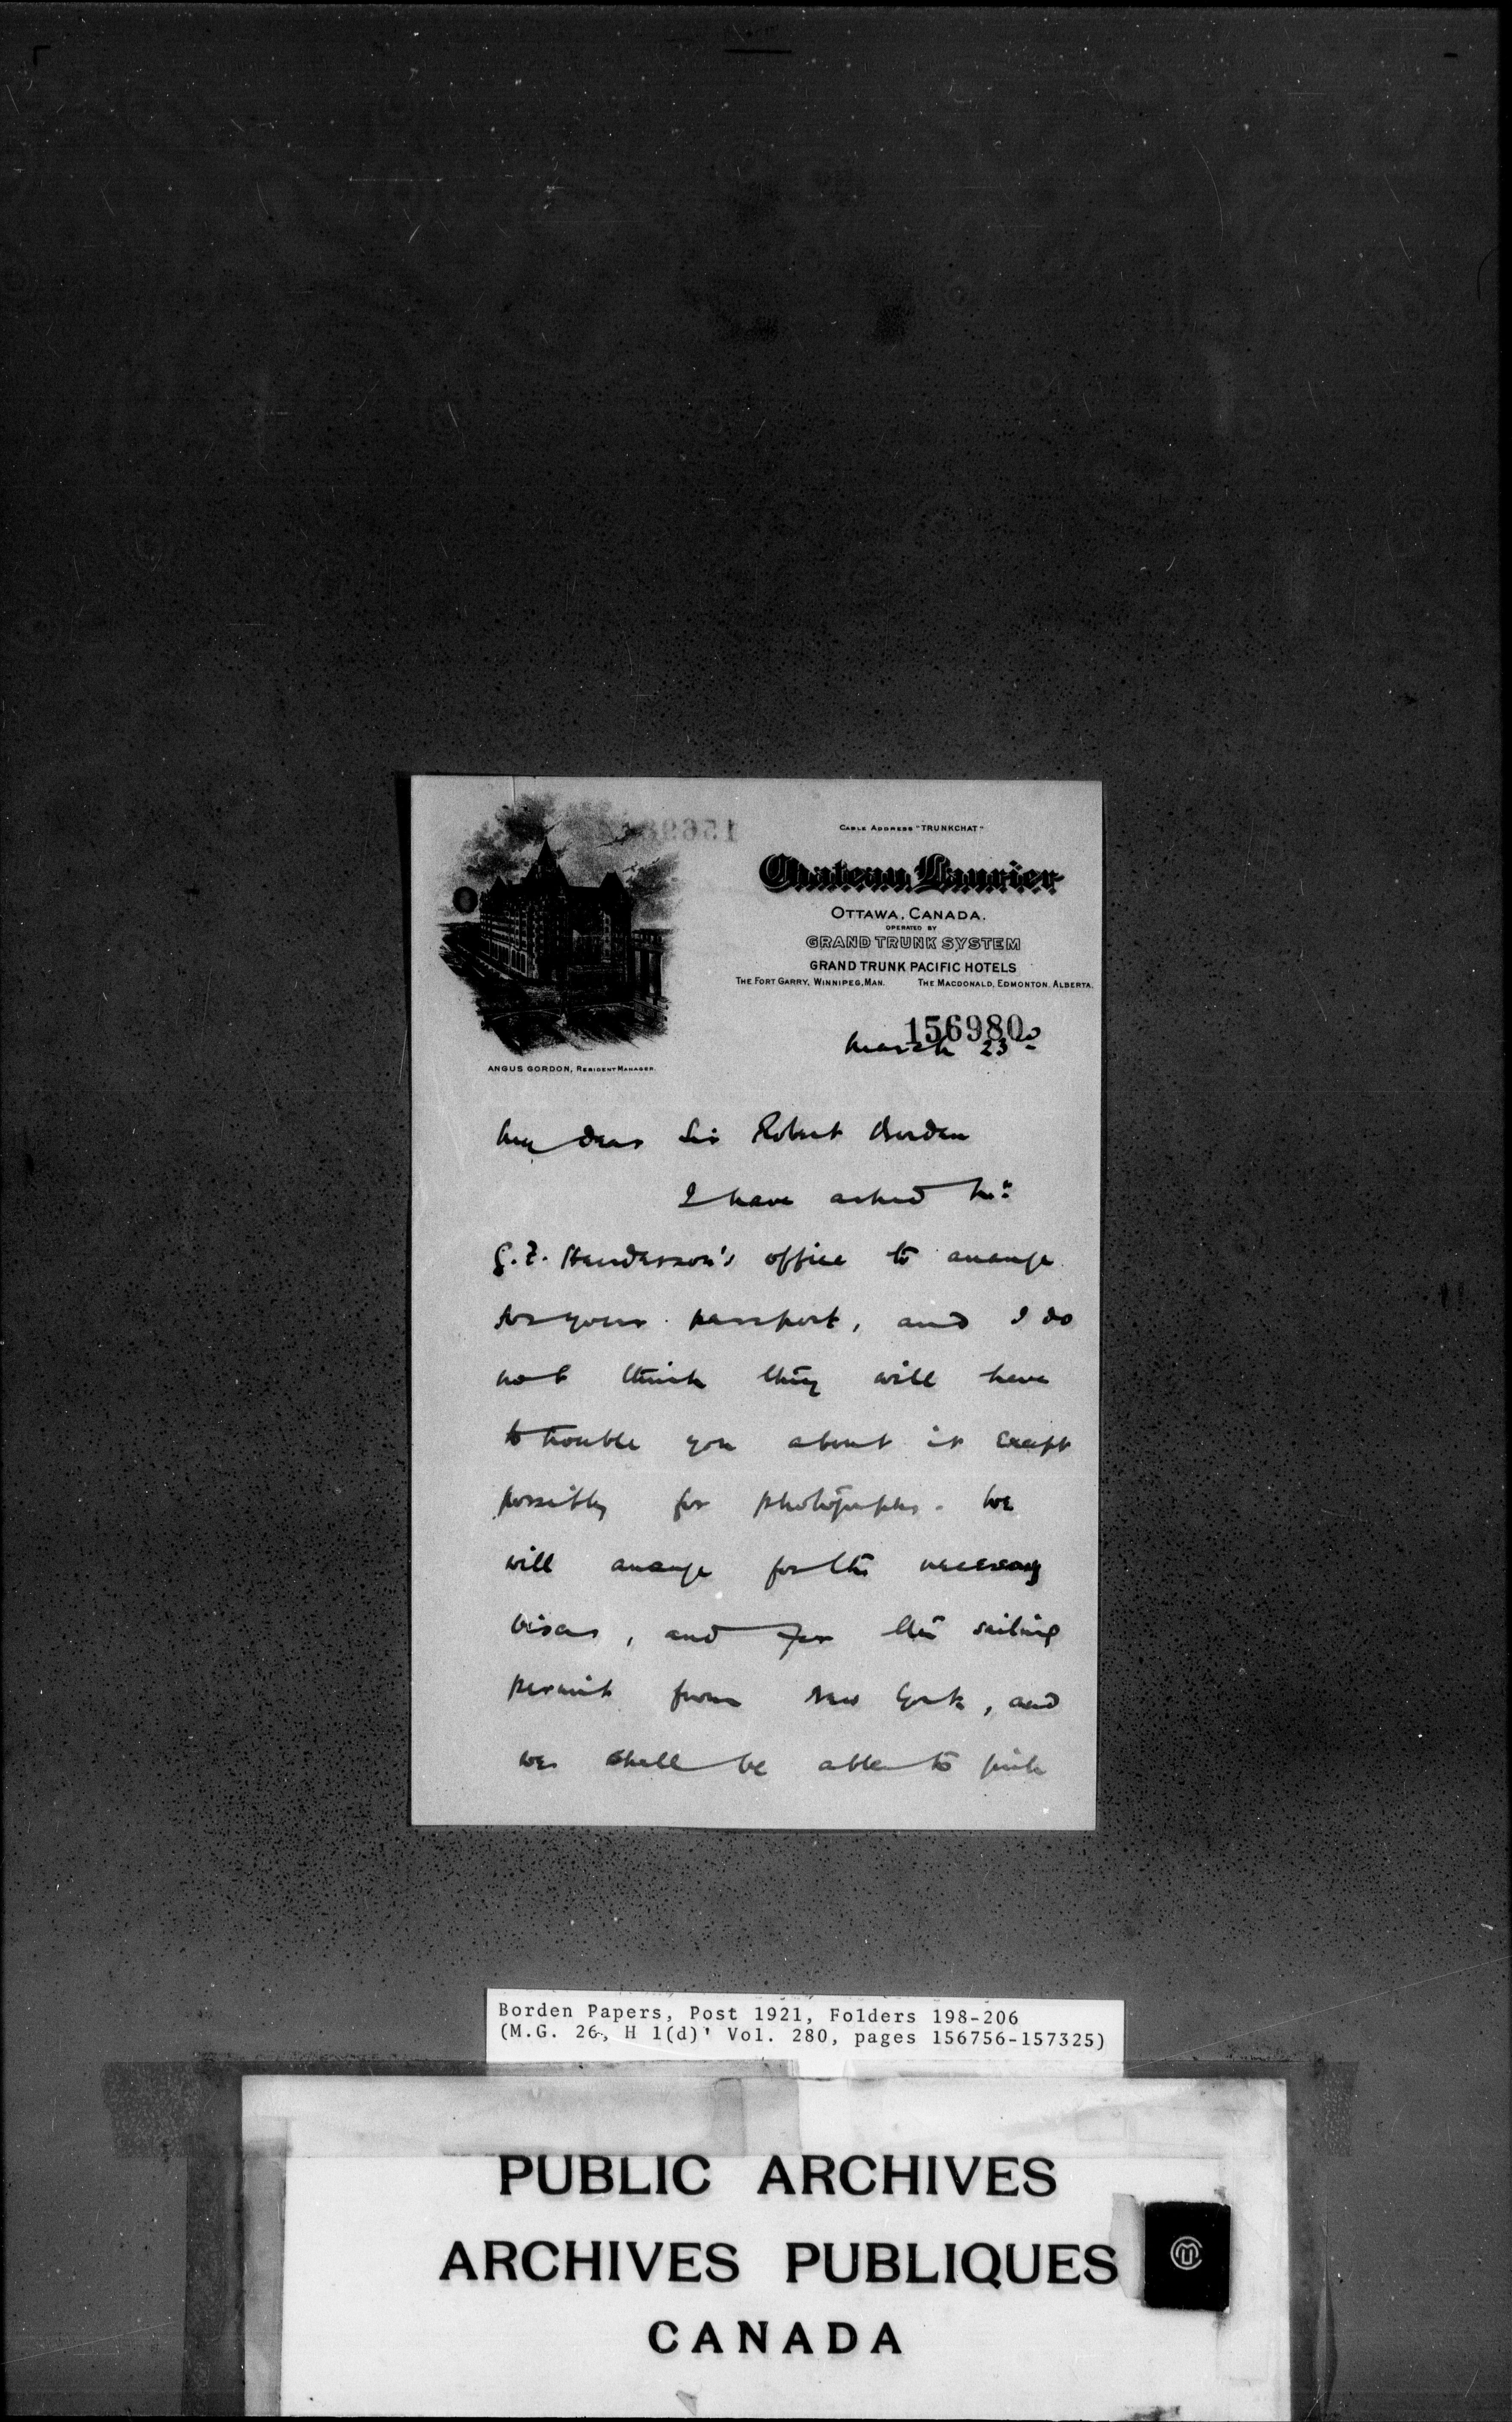 CABLE ADDRESS "TRUNKCHAT"
Chateau Laurier
OTTAWA, CANADA.
OPERATED BY
GRAND TRUNK SYSTEM
GRAND TRUNK PACIFIC HOTELS
THE FORT GARRY, WINNIPEG, MAN. THE MACDONALD, EDMONTON, ALBERTA.
ANGUS GORDON, RESIDENT MANAGER.
156980
March 23d
My dear Sir Robert Borden
I have asked Mr.
G.F. Henderson's office to arrange
for your passport, and I do
not think they will have
to trouble you about it except
possibly for photographs. We
will arrange for the necessary
visas, and for the sailing
permit from New York, and
we shall be able to pick
Borden Papers, Post 1921, Folders 198-206
(M.G. 26, H 1(d)' Vol. 280, pages 156756-157325)
PUBLIC ARCHIVES
ARCHIVES PUBLIQUES
CANADA